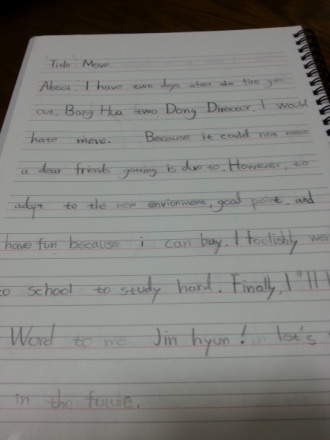 Title: Move
About: I have two days when the time you
out, Bang Hua two Dong Director, I would
hate move. Because it could not meet
a dear friends getting is due to. However, to
adapt to the new enviorment, good point, and
have fun because i can buy. I foolishly wen
to school to study hard. Finally, I'll
Word to me Jin hyun! let's
in the future.